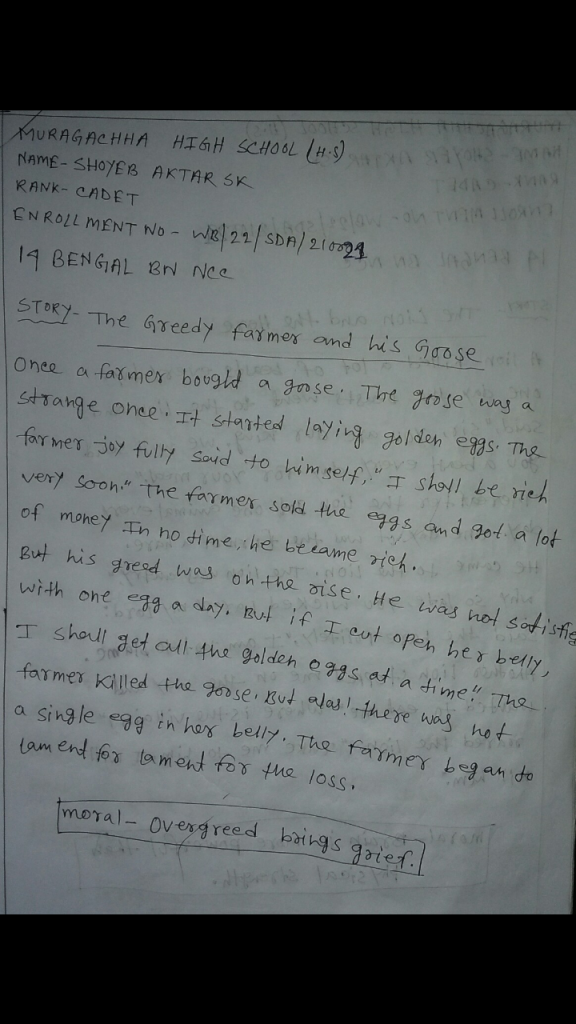 MURAGACHHA HIGH SCHOOL (H.S)
NAME- SHOYEB AKTAR SK
RANK- CADET
ENROLLMENT NO - WB/22/SDA/210021
19 BENGAL BN NCC
STORY- The Greedy farmer and his Goose
Once a farmer bought a goose. The goose was a
strange once. It started laying golden eggs. The
farmer joy fully said to himself, "I shall be rich
very soon." The farmer sold the eggs and got a lot
of money In no time he became rich.
But his greed was on the rise. He was not satisfie
with one egg a day. But if I cut open her belly,
I shall get all the golden eggs at a time". The
farmer killed the goose. But alas! there was not
a single egg in her belly. The farmer began to
lament for lament for the loss.
moral- Overgreed brings grief.